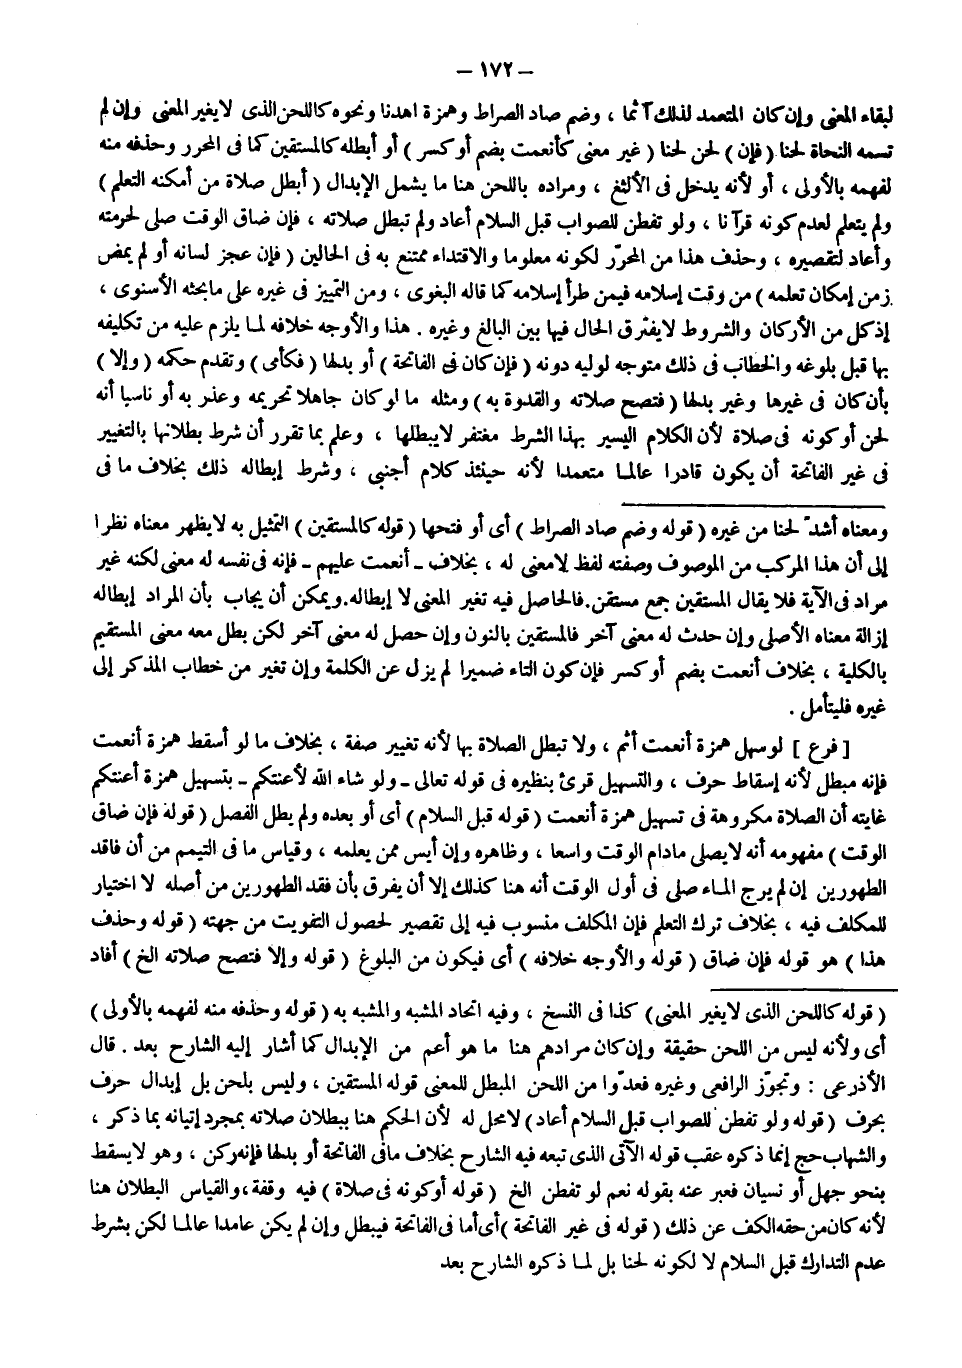 – ١٧٢ –
لبقاء المعنى وإن كان المتعمد لذلك آثما ، وضم صاد الصراط وهمزة اهدنا ونحوه كاللحن الذى لايغير المعنى وإن لم
تسمه النحاة لحنا ( فإن ) لحن لحنا ( غير معنى كأنعمت بضم أو كسر ) أو أبطله كالمستقين كما فى المحرر وحذفه منه
لفهمه بالأولى ، أو لأنه يدخل فى الألثغ ، ومراده باللحن هنا ما يشمل الإبدال ( أبطل صلاة من أمكنه التعلم )
ولم يتعلم لعدم كونه قرآنا ، ولو تفطن للصواب قبل السلام أعاد ولم تبطل صلاته ، فإن ضاق الوقت صلى لحرمته
وأعاد لتقصيره ، وحذف هذا من المحرّر لكونه معلوما والاقتداء ممتنع به فى الحالين ( فإن عجز لسانه أو لم يمض
زمن إمكان تعلمه ) من وقت إسلامه فيمن طرأ إسلامه كما قاله البغوى ، ومن التمييز فى غيره على مابحثه الأسنوى ،
إذ كل من الأركان والشروط لايفترق الحال فيها بين البالغ وغيره . هذا والأوجه خلافه لما يلزم عليه من تكليفه
بها قبل بلوغه والخطاب فى ذلك متوجه لوليه دونه ( فإن كان فى الفاتحة ) أو بدلها ( فكأمى ) وتقدم حكمه ( وإلا )
بأن كان فى غيرها وغير بدلها ( فتصح صلاته والقدوة به ) ومثله ما لو كان جاهلا تحريمه وعذر به أو ناسيا أنه
لحن أو كونه فى صلاة لأن الكلام اليسير بهذا الشرط مغتفر لايبطلها ، وعلم بما تقرر أن شرط بطلانها بالتغيير
فى غير الفاتحة أن يكون قادرا عالما متعمدا لأنه حينئذ كلام أجنبى ، وشرط إبطاله ذلك بخلاف ما فى
ومعناه أشدّ لحنا من غيره ( قوله وضم صاد الصراط ) أى أو فتحها ( قوله كالمستقين ) التمثيل به لايظهر معناه نظرا
إلى أن هذا المركب من الموصوف وصفته لفظ لامعنى له ، بخلاف ـ أنعمت عليهم ـ فإنه فى نفسه له معنى لكنه غير
مراد فى الآية فلا يقال المستقين جمع مستقن. فالحاصل فيه تغير المعنى لا إبطاله. ويمكن أن يجاب بأن المراد إبطاله
إزالة معناه الأصلى وإن حدث له معنى آخر فالمستقين بالنون وإن حصل له معنى آخر لكن بطل معه معنى المستقيم
بالكلية ، بخلاف أنعمت بضم أو كسر فإن كون التاء ضميرا لم يزل عن الكلمة وإن تغير من خطاب المذكر إلى
غيره فليتأمل .
[ فرع ] لو سهل همزة أنعمت أثم ، ولا تبطل الصلاة بها لأنه تغيير صفة ، بخلاف ما لو أسقط همزة أنعمت
فإنه مبطل لأنه إسقاط حرف ، والتسهيل قرئ بنظيره فى قوله تعالى ـ ولو شاء الله لأعنتكم ـ بتسهيل همزة أعنتكم
غايته أن الصلاة مكروهة فى تسهيل همزة أنعمت ( قوله قبل السلام ) أى أو بعده ولم يطل الفصل ( قوله فإن ضاق
الوقت ) مفهومه أنه لايصلى مادام الوقت واسعا ، وظاهره وإن أيس ممن يعلمه ، وقياس ما فى التيمم من أن فاقد
الطهورين إن لم يرج الماء صلى فى أول الوقت أنه هنا كذلك إلا أن يفرق بأن فقد الطهورين من أصله لا اختيار
للمكلف فيه ، بخلاف ترك التعلم فإن المكلف منسوب فيه إلى تقصير لحصول التفويت من جهته ( قوله وحذف
هذا ) هو قوله فإن ضاق ( قوله والأوجه خلافه ) أى فيكون من البلوغ ( قوله وإلا فتصح صلاته الخ ) أفاد
( قوله كاللحن الذى لايغير المعنى ) كذا فى النسخ ، وفيه اتحاد المشبه والمشبه به ( قوله وحذفه منه لفهمه بالأولى )
أى ولأنه ليس من اللحن حقيقة وإن كان مرادهم هنا ما هو أعم من الإبدال كما أشار إليه الشارح بعد . قال
الأذرعى : وتجوّز الرافعى وغيره فعدّوا من اللحن المبطل للمعنى قوله المستقين ، وليس بلحن بل إبدال حرف
بحرف ( قوله ولو تفطن للصواب قبل السلام أعاد ) لامحل له لأن الحكم هنا ببطلان صلاته بمجرد إتيانه بما ذكر ،
والشهاب حج إنما ذكره عقب قوله الآتى الذى تبعه فيه الشارح بخلاف مافى الفاتحة أو بدلها فإنه ركن ، وهو لايسقط
بنحو جهل أو نسيان فعبر عنه بقوله نعم لو تفطن الخ ( قوله أو كونه فى صلاة ) فيه وقفة، والقياس البطلان هنا
لأنه كان من حقه الكف عن ذلك ( قوله فى غير الفاتحة ) أى أما فى الفاتحة فيبطل وإن لم يكن عامدا عالما لكن بشرط
عدم التدارك قبل السلام لا لكونه لحنا بل لما ذكره الشارح بعد